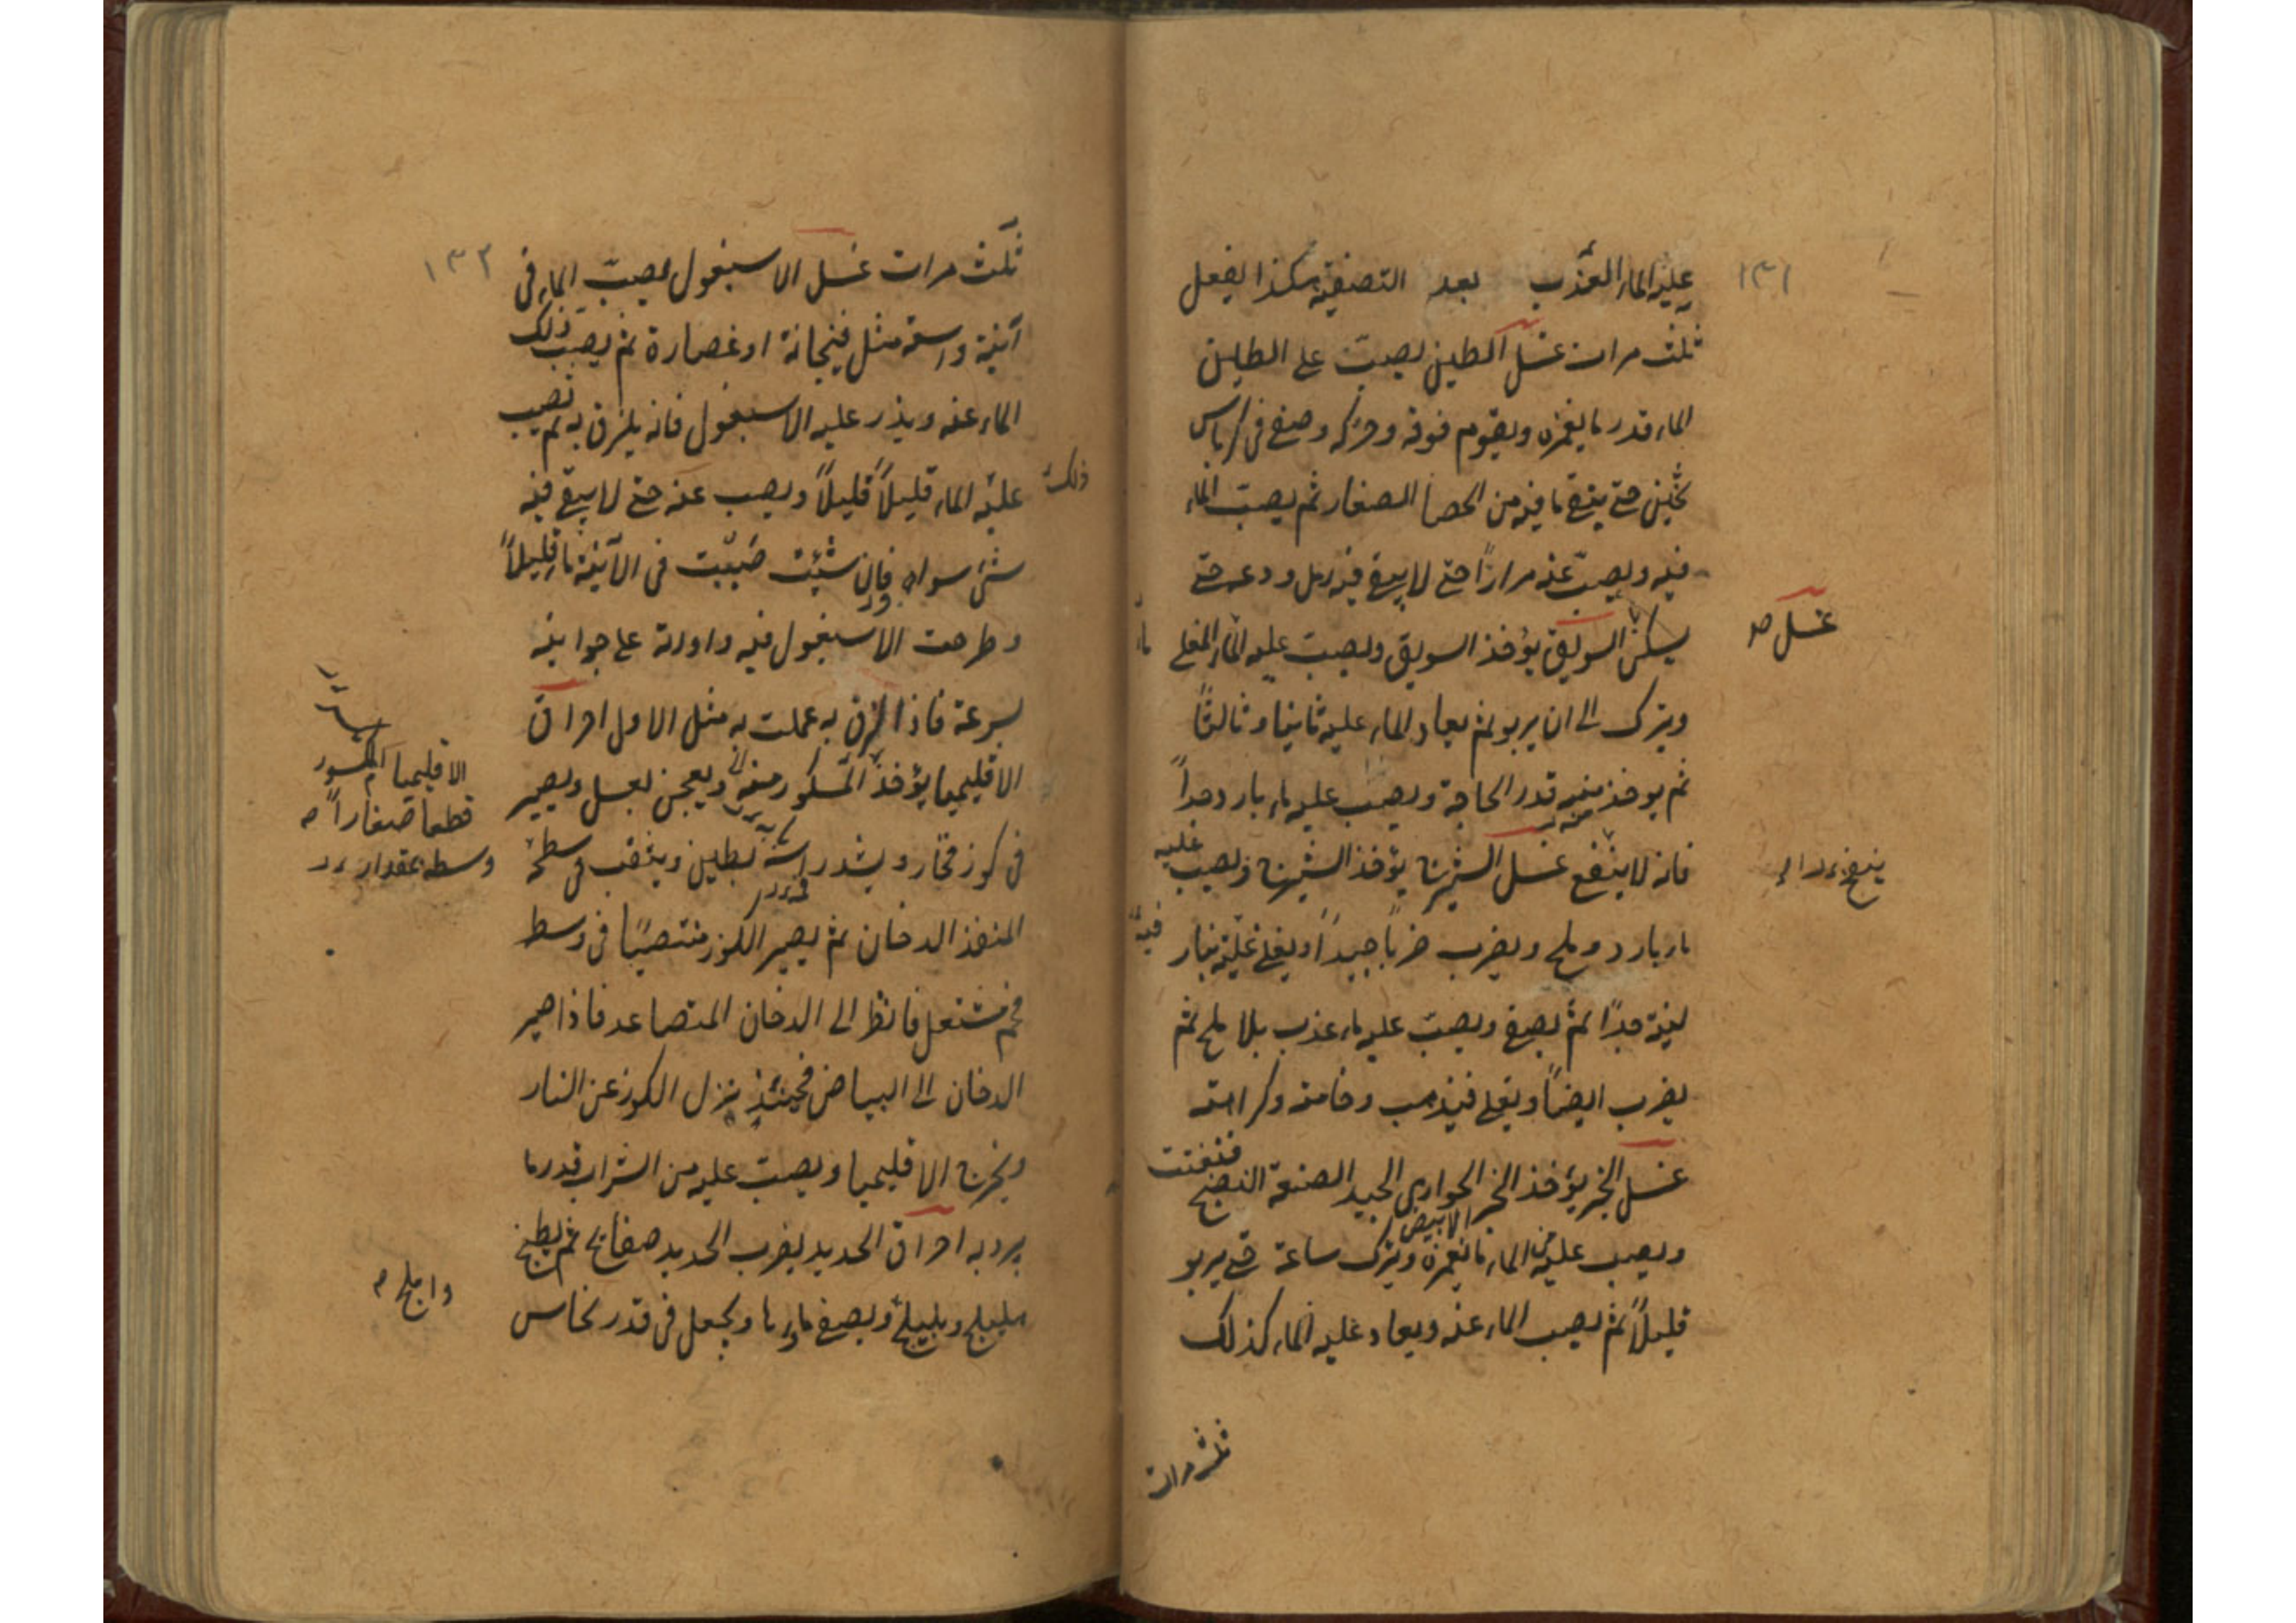 ١٣١
عليه الماء العذب بعد التصفية هكذا يفعل
ثلث مرات غسل الطين يصب على الطين
الماء قدر ما يغمره ويقوم فوقه وحركه وصفى فى كرباس
ثخين حتى ينقى ما فيه من الحصا الصغار ثم يصب الماء
فيه ويصب عنه مرارًا حتى لا يبقى فيه رمل ودعه حتى
يسكن السويق يؤخذ السويق ويصب عليه الماء المغلى
غسل صح
ويترك الى ان يربو ثم يعاد الماء عليه ثانيا وثالثًا
ثم يوخذ منه قدر الحاجة ويصب عليه ماء بارد جدًا
فانه لا ينفع غسل الشيرج يؤخذ الشيرج ويصب عليه
ماء بارد وملح ويضرب ضربًا جيدًا ويغلى غلية بنار
فيه
لينة جدًا ثم يصفى ويصب عليه ماء عذب بلا ملح ثم
يضرب ايضًا ويغلى فيذهب وخامته وكراهته
غسل الخبز يؤخذ الخبز الحوارى الجيد الصنعة النضيج فتفتت
الابيض
ويصب عليه من الماء ما يغمره ويترك ساعة حتى يربو
قليلًا ثم يصب الماء عنه ويعاد عليه الماء كذلك
ثلث مرات
١٣٢
ثلث مرات غسل الاسبغول يصب الماء فى
آنية واسعة مثل فنجانة او غضارة ثم يصب ذلك
الماء عنه ويذر عليه الاسبغول فانه يلزق به ثم تصب
عليه الماء قليلًا قليلًا ويصب عنه حتى لا يبقى فيه
ذلك
شئ سواه فان شئت صببت فى الآنية ماء قليلًا
وطرحت الاسبغول فيه وادرته على جوانبه
بسرعة فاذا لزق به عملت به مثل الاول احراق
الاقليميا يؤخذ المكسور منه ويعجن بعسل ويصير
الاقليميا المكسور
قطعا صغارًا
فى كوز فخار ويشد راسه بطين ويثقب فى سطحه
المنفذ الدخان ثم يصير الكوز منتصبًا فى وسط
فحم مشتعل فانظر الى الدخان المتصاعد فاذا صير
الدخان الى البياض فحينئذ ينزل الكوز عن النار
ويخرج الاقليميا ويصب عليه من الشراب قدر ما
يرد به احراق الحديد يضرب الحديد صفائح ثم يطبخ
هليلج وبليلج ويصفى ماءها ويجعل فى قدر نحاس
واملج